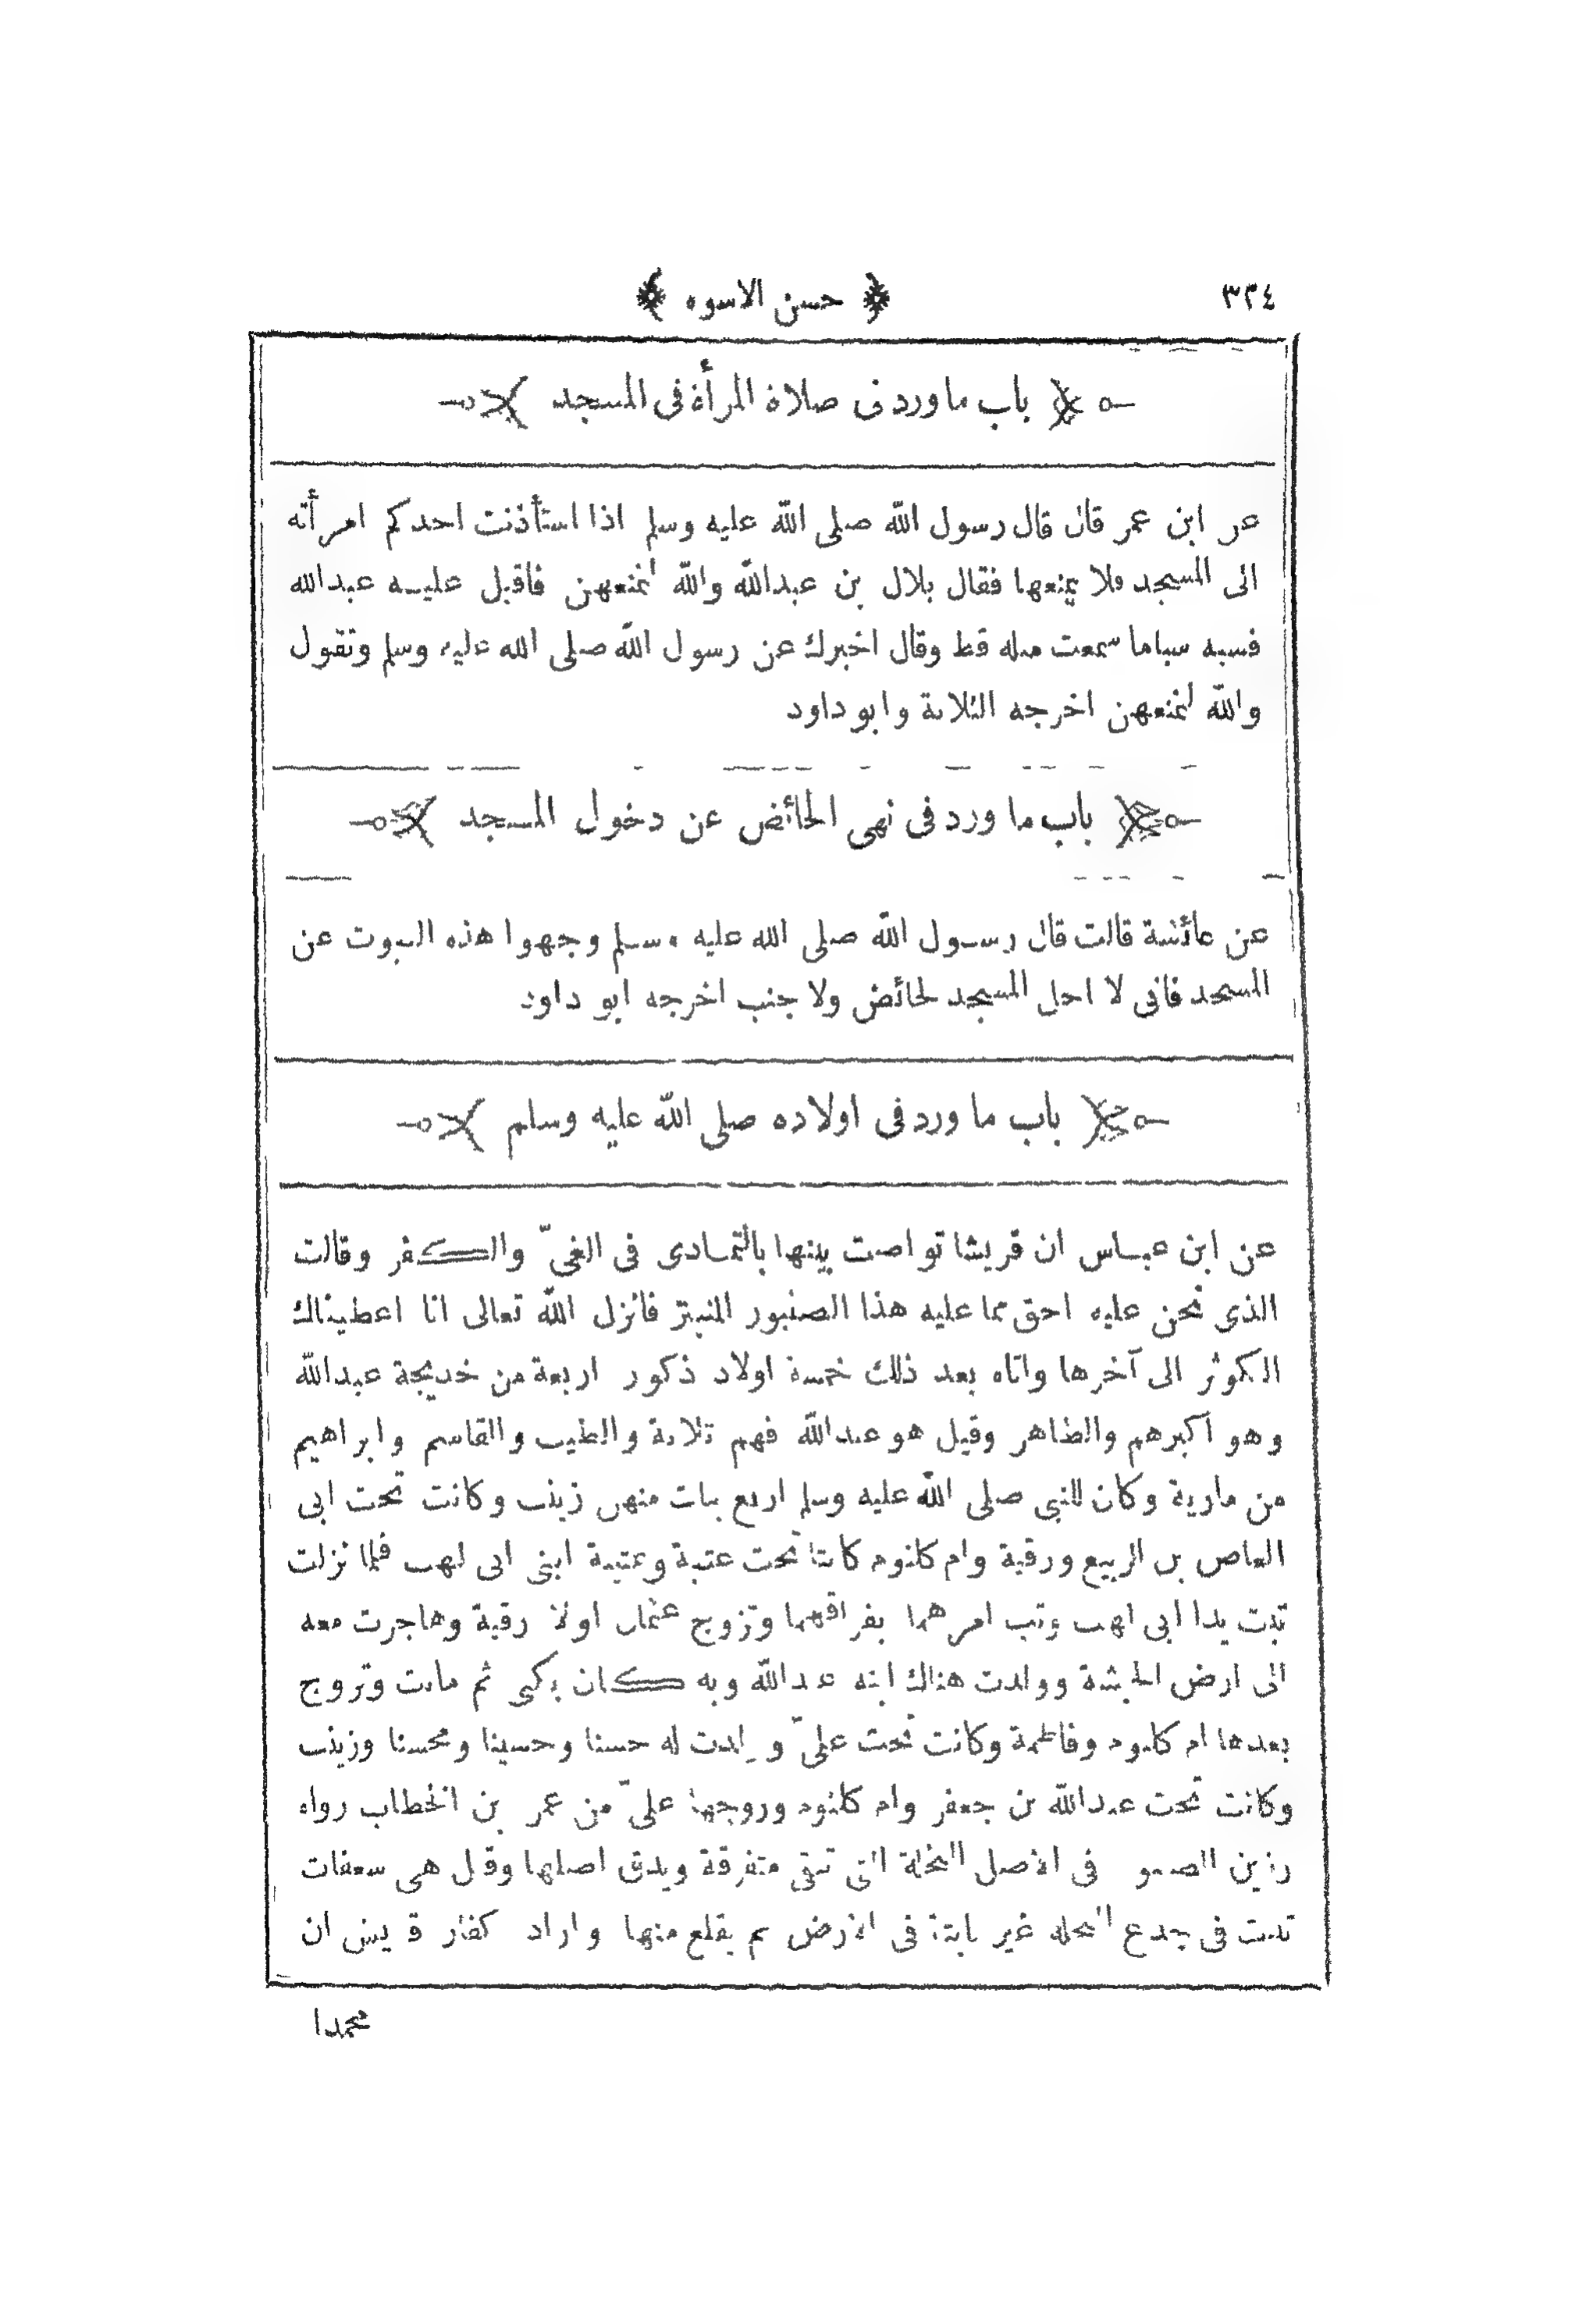 ٣٣٤ ﴿ حسن الاسوه ﴾
باب ما ورد فى صلاة المرأة فى المسجد
عن ابن عمر قال قال رسول الله صلى الله عليه وسلم اذا استأذنت احدكم امرأته
الى المسجد فلا يمنعها فقال بلال بن عبدالله والله لنمنعهن فاقبل عليه عبدالله
فسبه سبا ما سمعت مثله قط وقال اخبرك عن رسول الله صلى الله عليه وسلم وتقول
والله لنمنعهن اخرجه الثلاثة وابو داود
باب ما ورد فى نهى الحائض عن دخول المسجد
عن عائشة قالت قال رسول الله صلى الله عليه وسلم وجهوا هذه البيوت عن
المسجد فانى لا احل المسجد لحائض ولا جنب اخرجه ابو داود
باب ما ورد فى اولاده صلى الله عليه وسلم
عن ابن عباس ان قريشا تواصت بينها بالتمادى فى الغىّ والكفر وقالت
الذى نحن عليه احق مما عليه هذا الصنبور المنبتر فانزل الله تعالى انا اعطيناك
الكوثر الى آخرها واتاه بعد ذلك خمسة اولاد ذكور اربعة من خديجة عبدالله
وهو اكبرهم والطاهر وقيل هو عبدالله فهم ثلاثة والطيب والقاسم وابراهيم
من مارية وكان للنبى صلى الله عليه وسلم اربع بنات منهن زينب وكانت تحت ابى
العاص بن الربيع ورقية وام كلثوم كانتا تحت عتبة وعتيبة ابنى ابى لهب فلما نزلت
تبت يدا ابى لهب وتب امرهما بفراقهما وتزوج عثمان اولا رقية وهاجرت معه
الى ارض الحبشة وولدت هناك ابنه عبدالله وبه كان يكنى ثم ماتت وتزوج
بعدها ام كلثوم وفاطمة وكانت تحت علىّ وولدت له حسنا وحسينا ومحسنا وزينب
وكانت تحت عبدالله بن جعفر وام كلثوم وزوجها علىّ من عمر بن الخطاب رواه
رزين الصنبور فى الاصل النخلة التى تبقى متفرقة ويدق اصلها وقيل هى سعفات
تنبت فى جذع النخلة غير نابتة فى الارض ثم يقلع منها واراد كفار قريش ان
محمدا